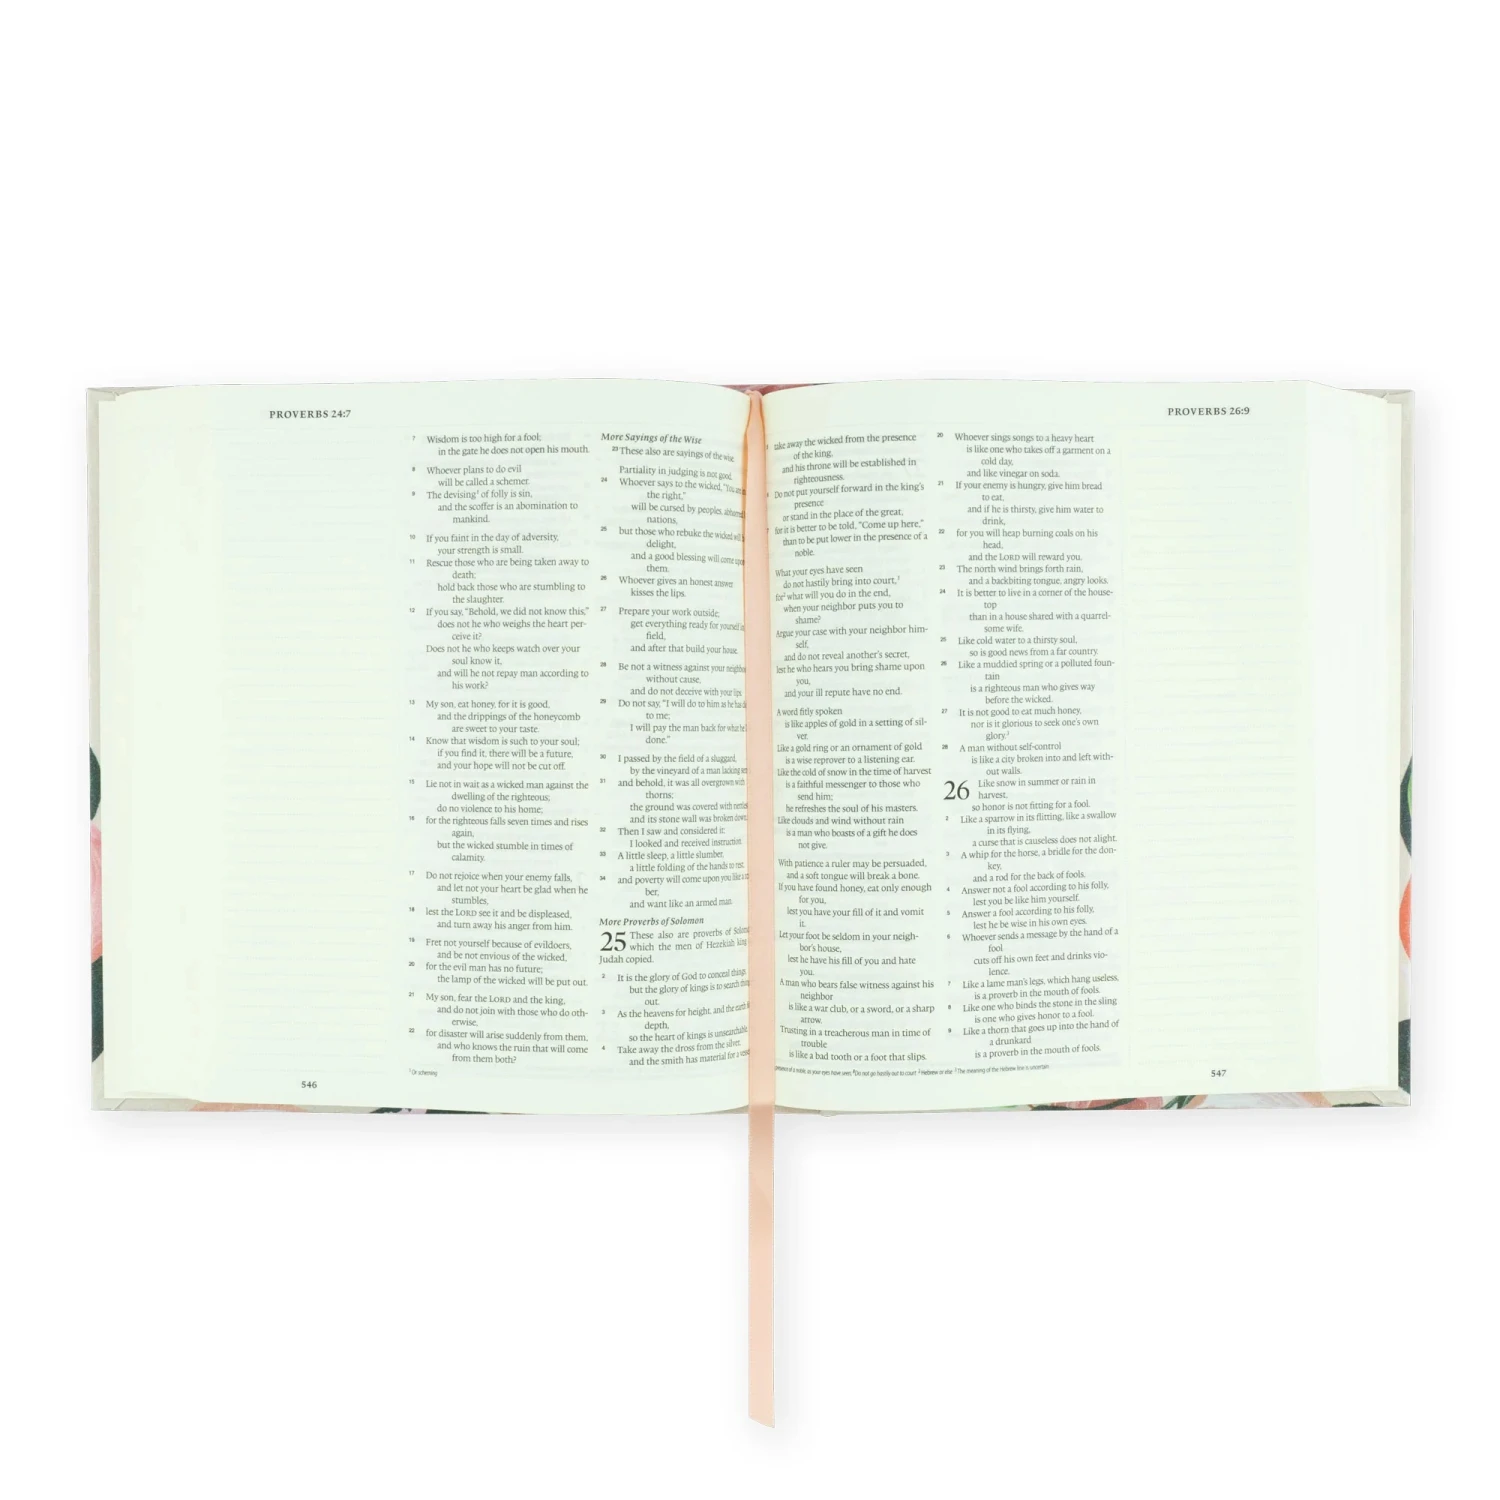 PROVERBS 24:7
7 Wisdom is too high for a fool;
in the gate he does not open his mouth.
8 Whoever plans to do evil
will be called a schemer.
9 The devising¹ of folly is sin,
and the scoffer is an abomination to
mankind.
10 If you faint in the day of adversity,
your strength is small.
11 Rescue those who are being taken away to
death;
hold back those who are stumbling to
the slaughter.
12 If you say, "Behold, we did not know this,"
does not he who weighs the heart per-
ceive it?
Does not he who keeps watch over your
soul know it,
and will he not repay man according to
his work?
13 My son, eat honey, for it is good,
and the drippings of the honeycomb
are sweet to your taste.
14 Know that wisdom is such to your soul;
if you find it, there will be a future,
and your hope will not be cut off.
15 Lie not in wait as a wicked man against the
dwelling of the righteous;
do no violence to his home;
16 for the righteous falls seven times and rises
again,
but the wicked stumble in times of
calamity.
17 Do not rejoice when your enemy falls,
and let not your heart be glad when he
stumbles,
18 lest the LORD see it and be displeased,
and turn away his anger from him.
19 Fret not yourself because of evildoers,
and be not envious of the wicked,
20 for the evil man has no future;
the lamp of the wicked will be put out.
21 My son, fear the LORD and the king,
and do not join with those who do oth-
erwise,
22 for disaster will arise suddenly from them,
and who knows the ruin that will come
from them both?
More Sayings of the Wise
23 These also are sayings of the wise.
Partiality in judging is not good.
24 Whoever says to the wicked, "You are
the right,"
will be cursed by peoples, abhorred
nations,
25 but those who rebuke the wicked will
delight,
and a good blessing will come upon
them.
26 Whoever gives an honest answer
kisses the lips.
27 Prepare your work outside;
get everything ready for yourself in
field,
and after that build your house.
28 Be not a witness against your neighbor
without cause,
and do not deceive with your lips.
29 Do not say, "I will do to him as he has
to me;
I will pay the man back for what he
done."
30 I passed by the field of a sluggard,
by the vineyard of a man lacking
31 and behold, it was all overgrown with
thorns;
the ground was covered with nettles,
and its stone wall was broken down.
32 Then I saw and considered it;
I looked and received instruction.
33 A little sleep, a little slumber,
a little folding of the hands to rest,
34 and poverty will come upon you like a
ber,
and want like an armed man.
More Proverbs of Solomon
25 These also are proverbs of Solomon
which the men of Hezekiah king
Judah copied.
2 It is the glory of God to conceal things,
but the glory of kings is to search things
out.
3 As the heavens for height, and the earth
depth,
so the heart of kings is unsearchable.
4 Take away the dross from the silver,
and the smith has material for a
¹ Or scheming
546
PROVERBS 26:9
take away the wicked from the presence
of the king,
and his throne will be established in
righteousness.
Do not put yourself forward in the king's
presence
or stand in the place of the great,
for it is better to be told, "Come up here,"
than to be put lower in the presence of a
noble.
What your eyes have seen
do not hastily bring into court,¹
for² what will you do in the end,
when your neighbor puts you to
shame?
Argue your case with your neighbor him-
self,
and do not reveal another's secret,
lest he who hears you bring shame upon
you,
and your ill repute have no end.
A word fitly spoken
is like apples of gold in a setting of sil-
ver.
Like a gold ring or an ornament of gold
is a wise reprover to a listening ear.
Like the cold of snow in the time of harvest
is a faithful messenger to those who
send him;
he refreshes the soul of his masters.
Like clouds and wind without rain
is a man who boasts of a gift he does
not give.
With patience a ruler may be persuaded,
and a soft tongue will break a bone.
If you have found honey, eat only enough
for you,
lest you have your fill of it and vomit
it.
Let your foot be seldom in your neigh-
bor's house,
lest he have his fill of you and hate
you.
A man who bears false witness against his
neighbor
is like a war club, or a sword, or a sharp
arrow.
Trusting in a treacherous man in time of
trouble
is like a bad tooth or a foot that slips.
20 Whoever sings songs to a heavy heart
is like one who takes off a garment on a
cold day,
and like vinegar on soda.
21 If your enemy is hungry, give him bread
to eat,
and if he is thirsty, give him water to
drink,
22 for you will heap burning coals on his
head,
and the LORD will reward you.
23 The north wind brings forth rain,
and a backbiting tongue, angry looks.
24 It is better to live in a corner of the house-
top
than in a house shared with a quarrel-
some wife.
25 Like cold water to a thirsty soul,
so is good news from a far country.
26 Like a muddied spring or a polluted foun-
tain
is a righteous man who gives way
before the wicked.
27 It is not good to eat much honey,
nor is it glorious to seek one's own
glory.³
28 A man without self-control
is like a city broken into and left with-
out walls.
26 Like snow in summer or rain in
harvest,
so honor is not fitting for a fool.
2 Like a sparrow in its flitting, like a swallow
in its flying,
a curse that is causeless does not alight.
3 A whip for the horse, a bridle for the don-
key,
and a rod for the back of fools.
4 Answer not a fool according to his folly,
lest you be like him yourself.
5 Answer a fool according to his folly,
lest he be wise in his own eyes.
6 Whoever sends a message by the hand of a
fool
cuts off his own feet and drinks vio-
lence.
7 Like a lame man's legs, which hang useless,
is a proverb in the mouth of fools.
8 Like one who binds the stone in the sling
is one who gives honor to a fool.
9 Like a thorn that goes up into the hand of
a drunkard
is a proverb in the mouth of fools.
presence of a noble, as your eyes have seen. ⁸Do not go hastily out to court ² Hebrew or else ³ The meaning of the Hebrew line is uncertain
547